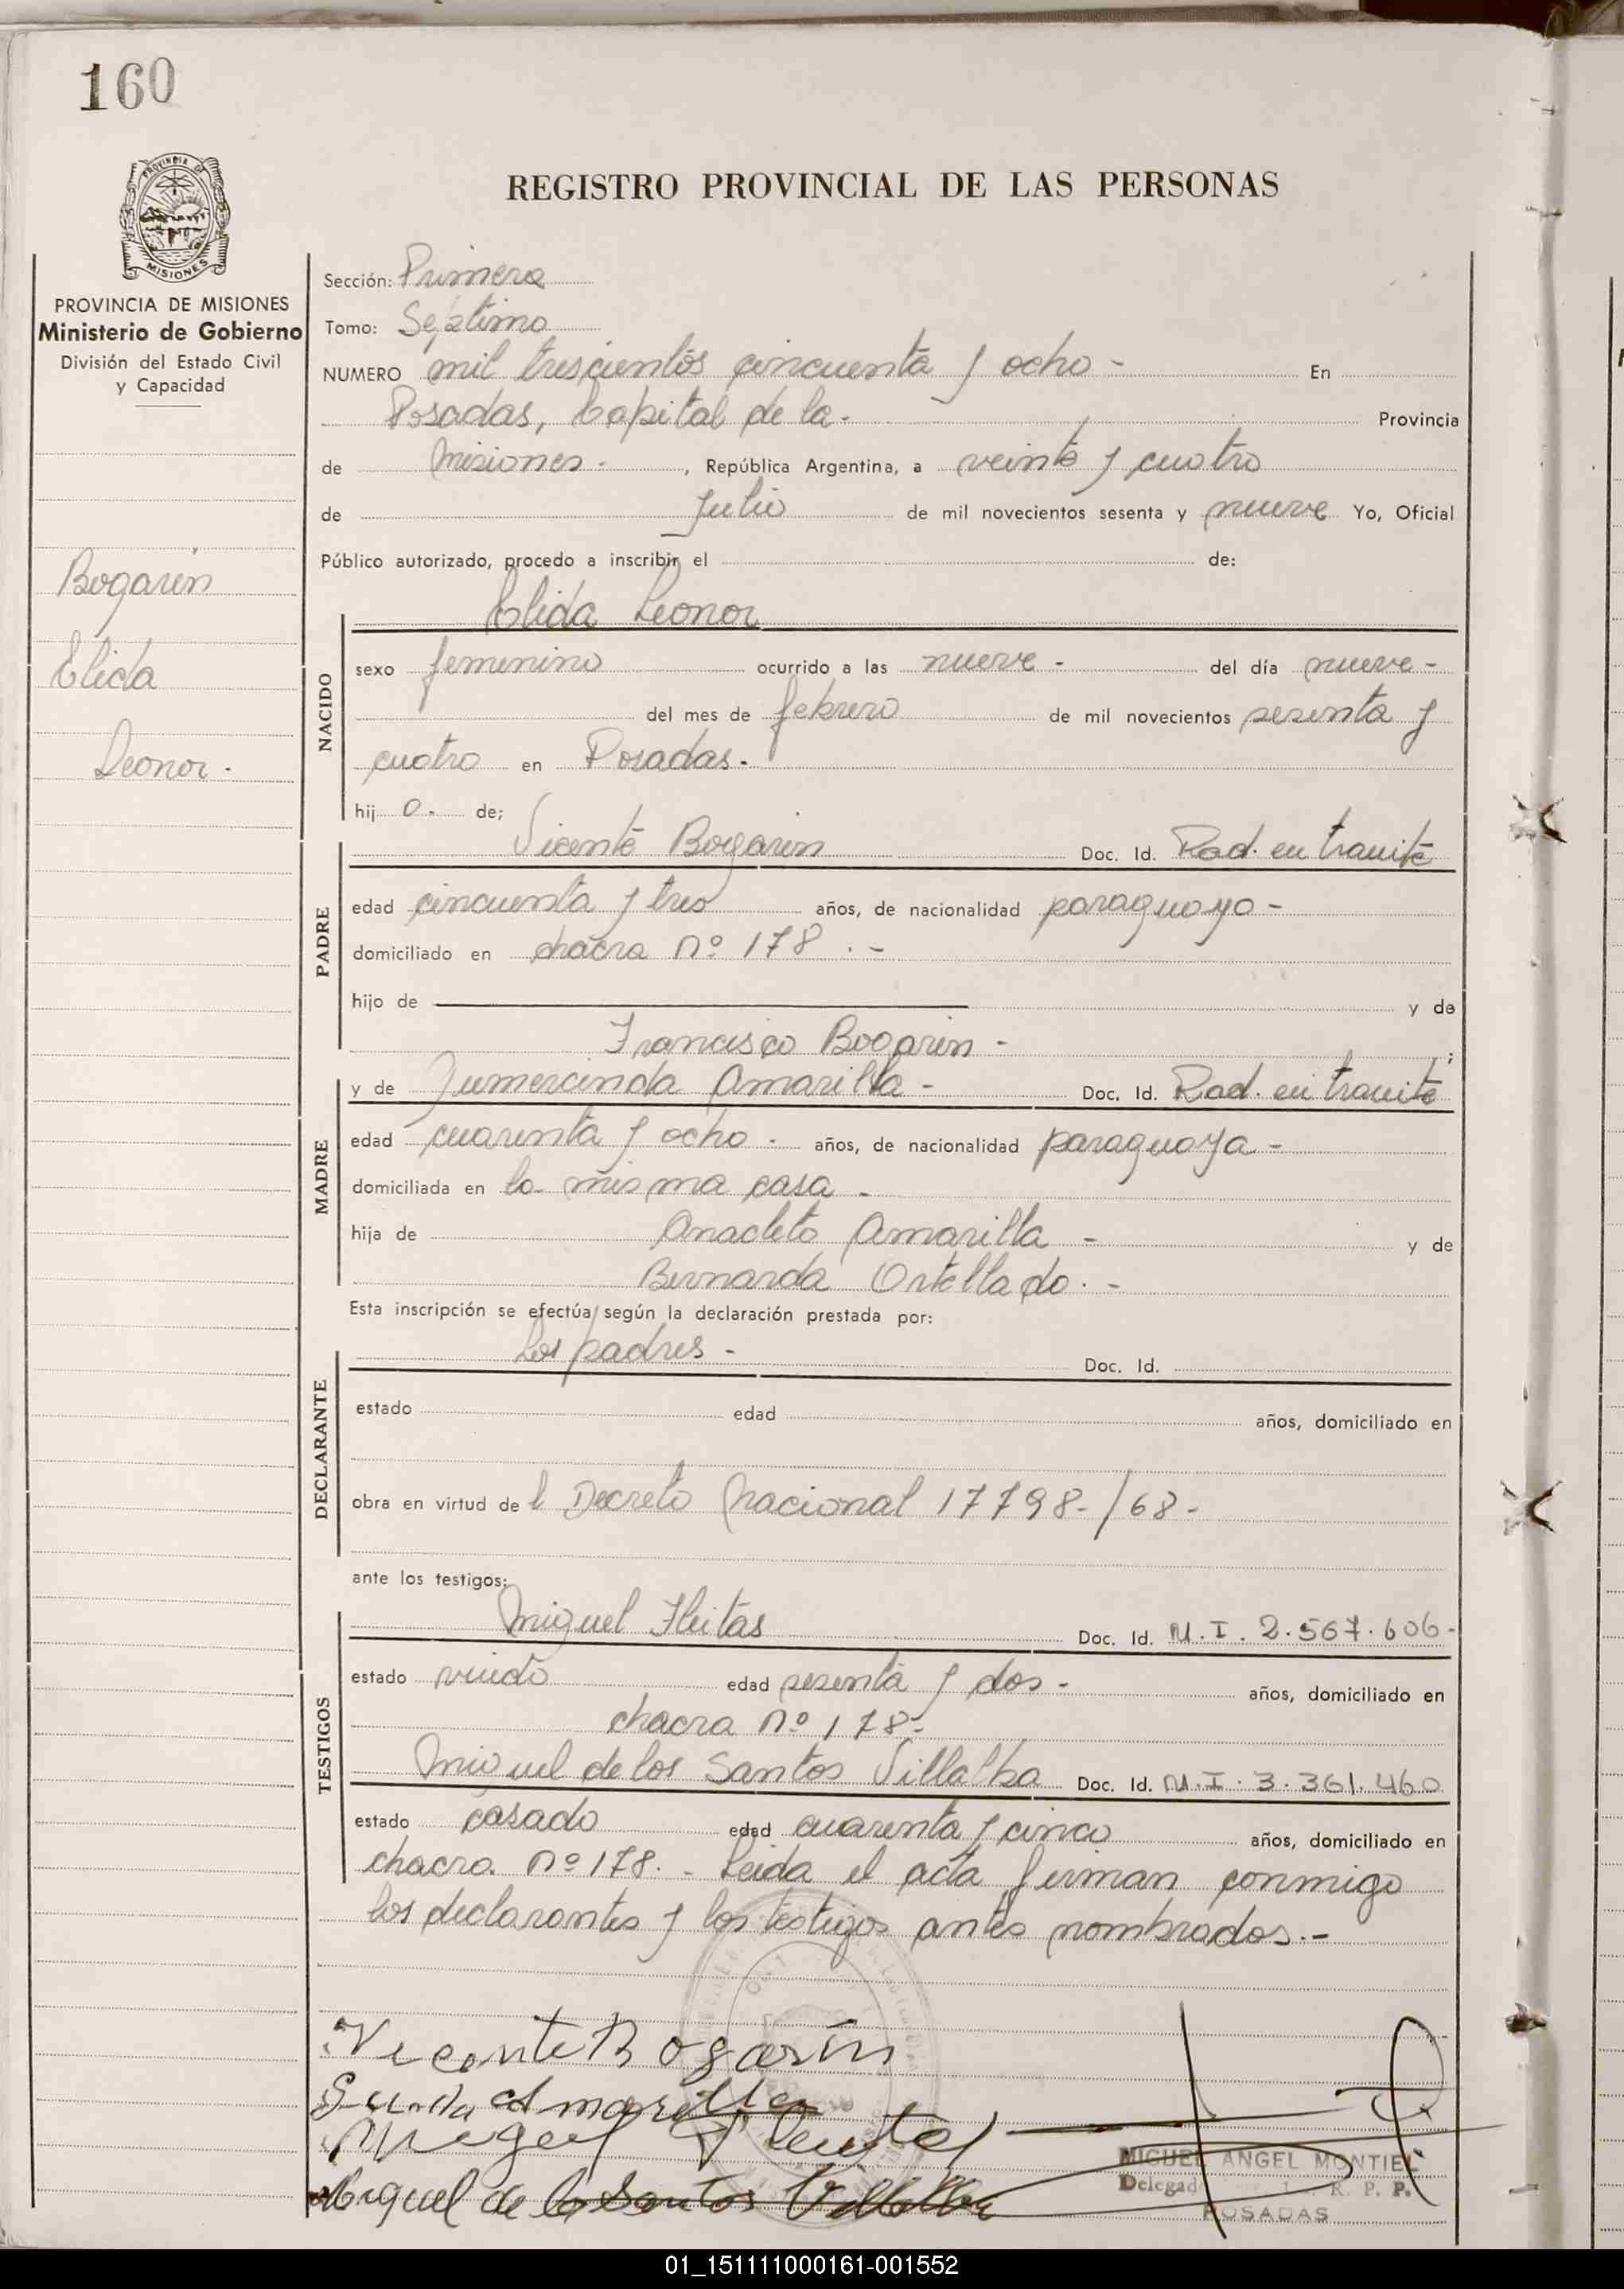 160
PROVINCIA DE
MISIONES
REGISTRO PROVINCIAL DE LAS PERSONAS
PROVINCIA DE MISIONES
Ministerio de Gobierno
División del Estado Civil
y Capacidad
Bogarin
Elida
Leonor.
Sección: Primera
Tomo: Séptimo
NUMERO mil trescientos cincuenta y ocho - En
Posadas, Capital de la - Provincia
de Misiones -, República Argentina, a veinte y cuatro
de Julio de mil novecientos sesenta y nueve Yo, Oficial
Público autorizado, procedo a inscribir el de:
Elida Leonor
NACIDO
sexo femenino ocurrido a las nueve - del día nueve -
del mes de febrero de mil novecientos sesenta y
cuatro en Posadas -
hij o. de;
Vicente Bogarin Doc. Id. Rad. en tramite
PADRE
edad cincuenta y tres años, de nacionalidad paraguayo -
domiciliado en chacra nº 178 . -
hijo de y de
Francisco Bogarin - ;
y de Gumercinda Amarilla - Doc. Id. Rad. en tramite
MADRE
edad cuarenta y ocho - años, de nacionalidad paraguaya -
domiciliada en la misma casa -
hija de Anacleto Amarilla - y de
Bernarda Ortellado . -
Esta inscripción se efectúa según la declaración prestada por:
Los padres - Doc. Id.
DECLARANTE
estado edad años, domiciliado en
obra en virtud de l Decreto Nacional 17798-/68-
ante los testigos:
Miguel Fleitas Doc. Id. M.I. 2.567.606-
TESTIGOS
estado viudo edad sesenta y dos - años, domiciliado en
chacra nº 178-
Miguel de los Santos Villalba Doc. Id. M.I. 3.361.460
estado casado edad cuarenta y cinco años, domiciliado en
chacra nº 178. - Leida el acta firman conmigo
los declarantes y los testigos antes nombrados.-
Vicente Bogarín
Amarilla
Miguel Fleitas
Miguel de los Santos Villalba
MIGUEL ANGEL MONTIEL
Delegad R. P. P.
POSADAS
01_151111000161-001552